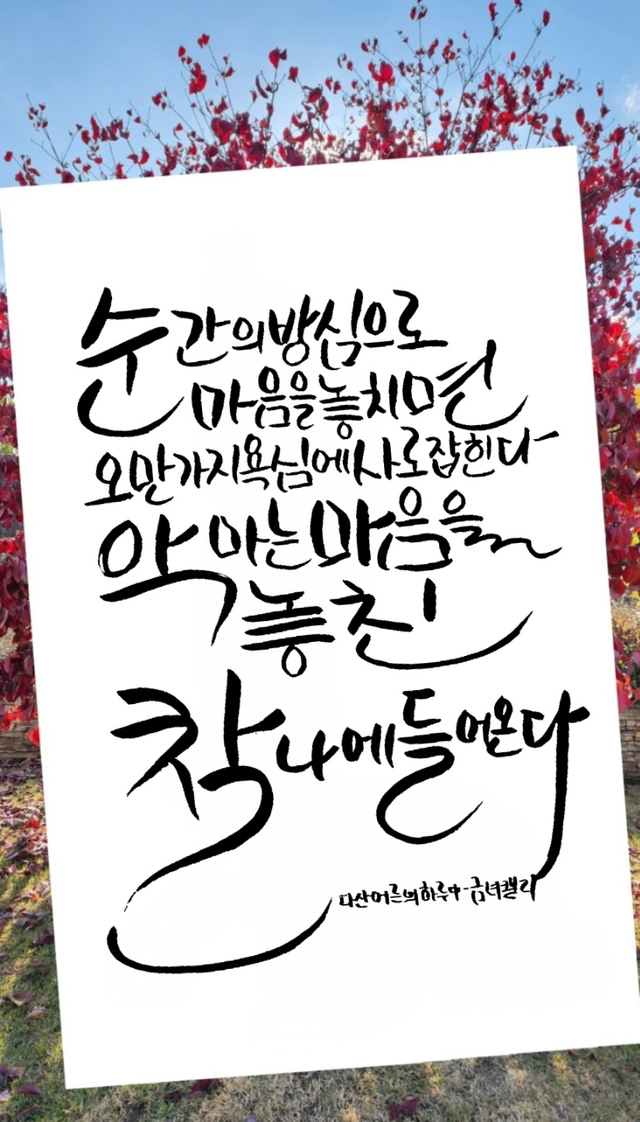 순간의방심으로
마음을놓치면
오만가지욕심에사로잡힌다
악마는마음을
놓친
찰나에들어온다
다산어른의하루中-금녀캘리